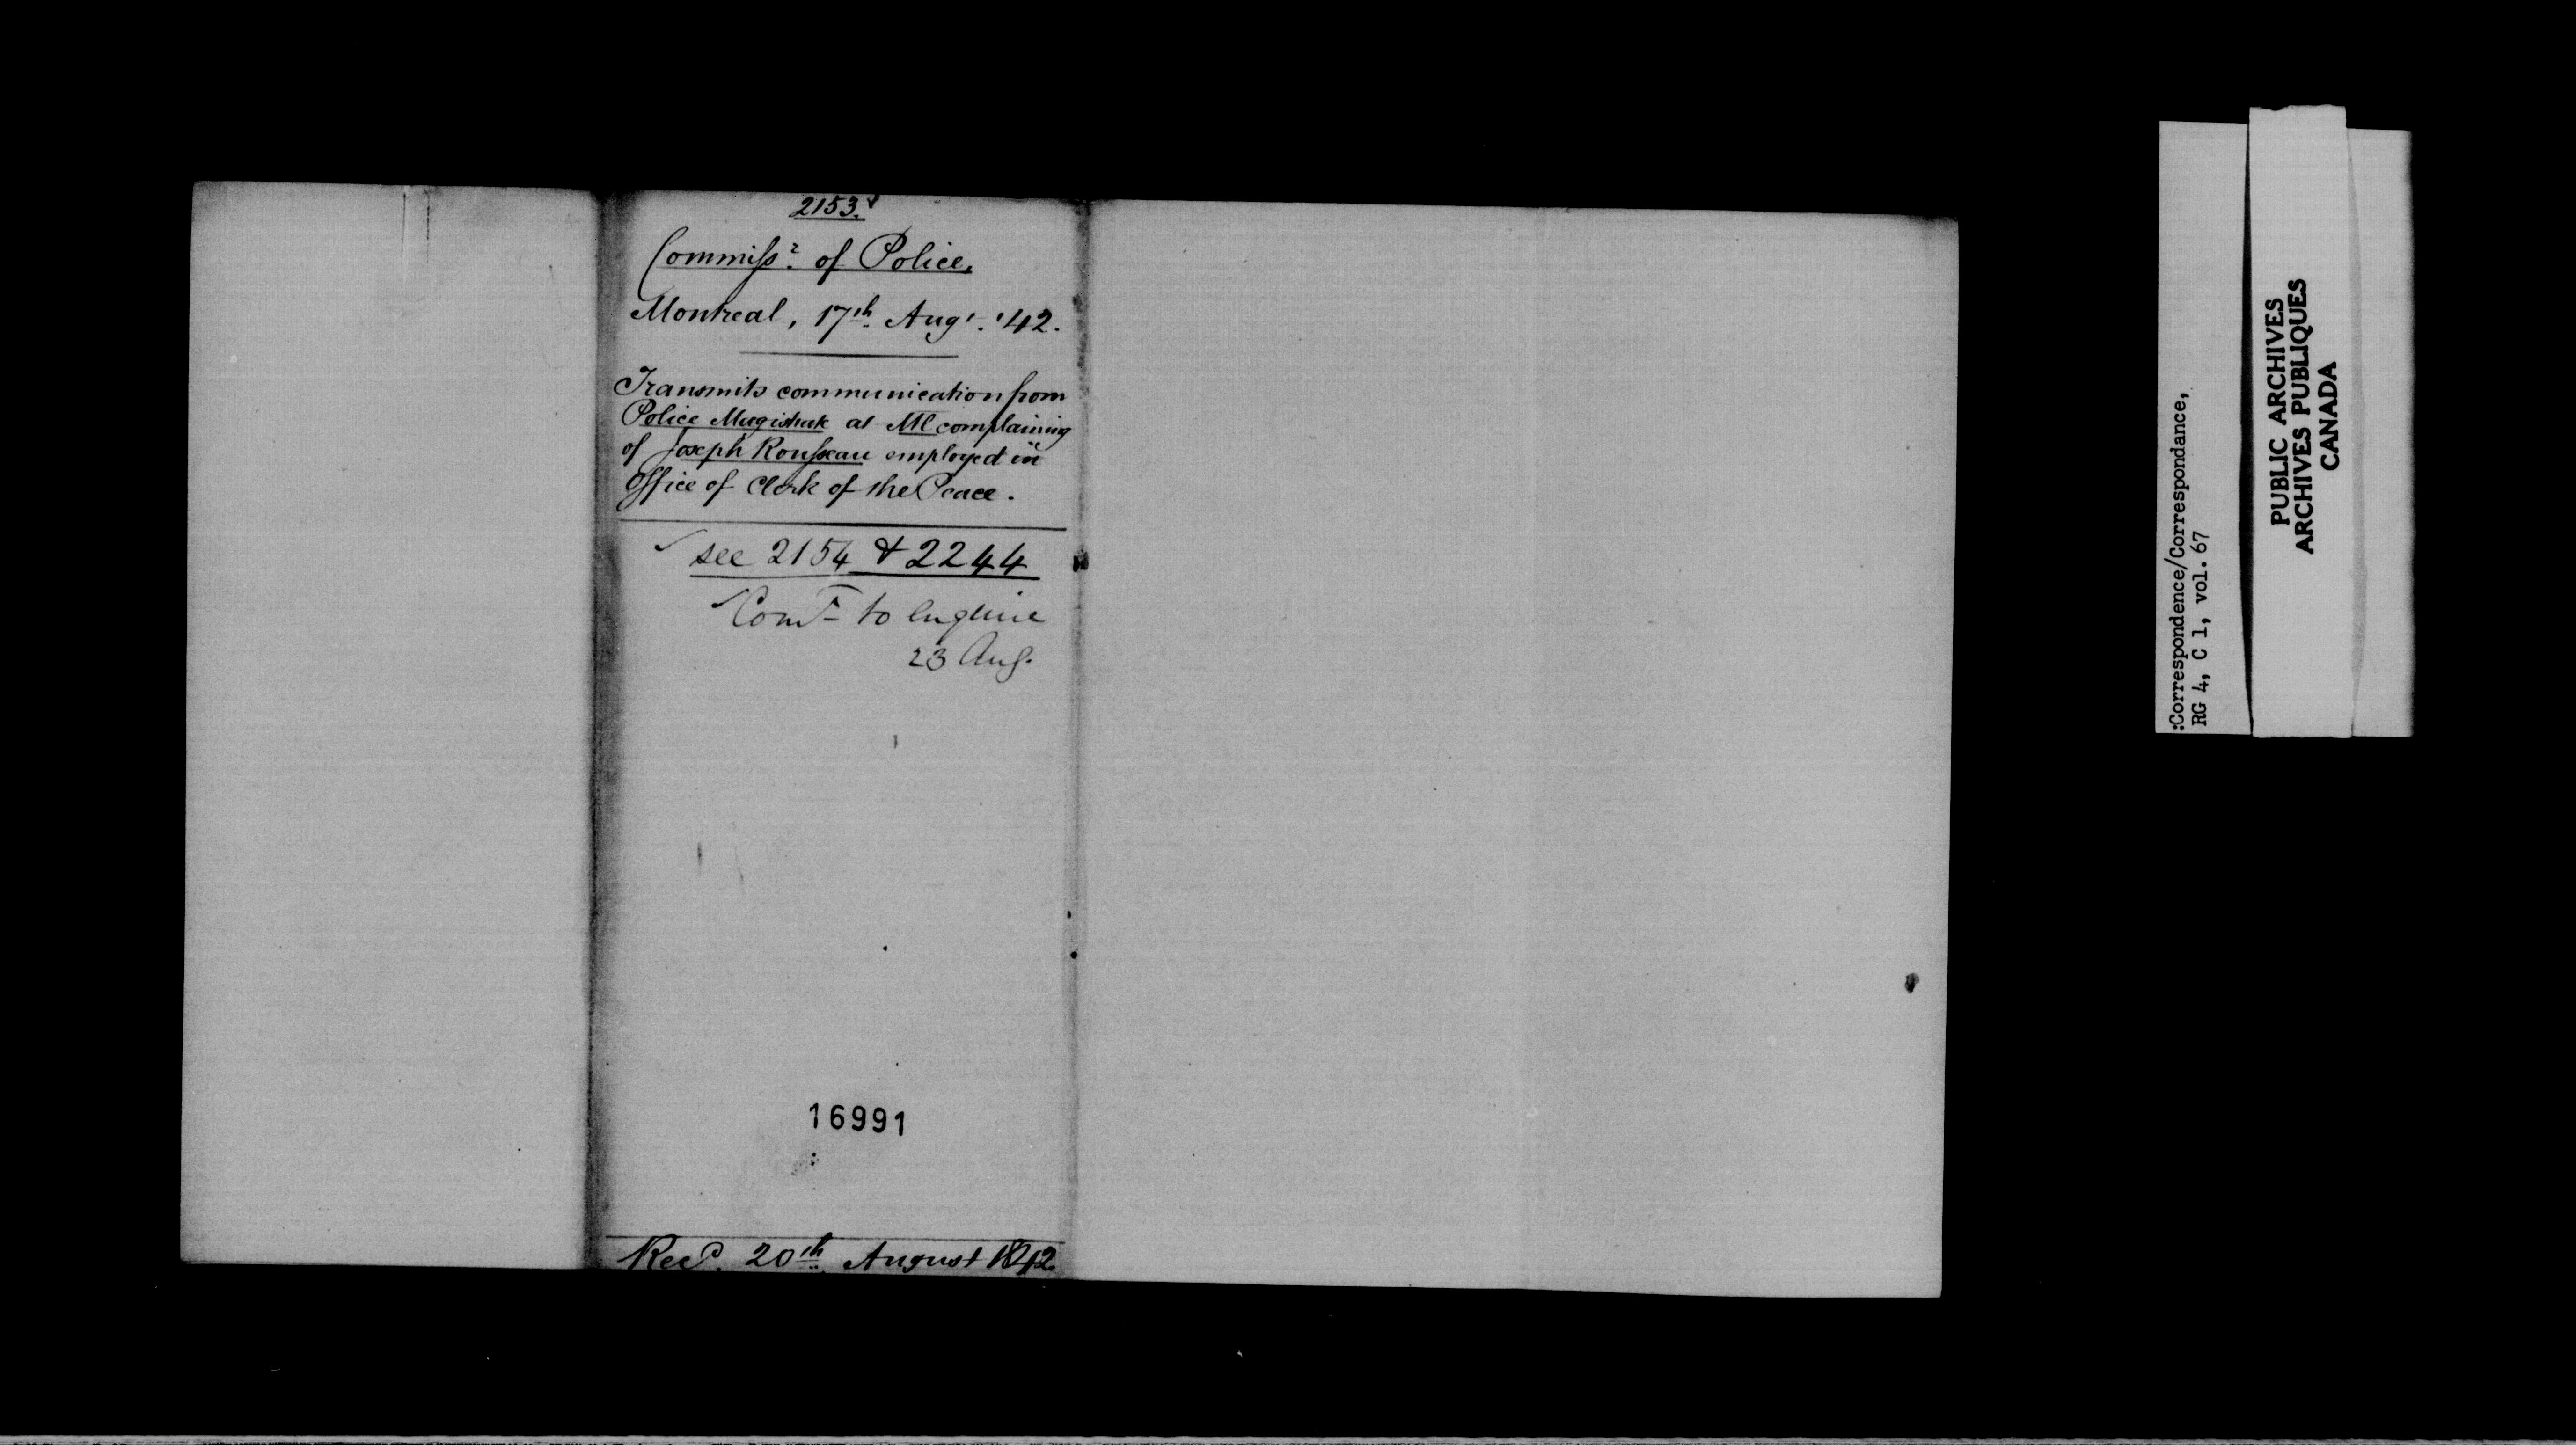 2153.
Commissr. of Police,
Montreal, 17th. Augt. '42.
Transmits communication from
Police Magistrate at Mtl complaining
of Joseph Rousseau employed in
Office of Clerk of the Peace.
see 2154 & 2244
to Enquire
23 Aug.
16991
Recd. 20th August 1842
:Correspondence/Correspondance,
RG 4, C 1, vol. 67
PUBLIC ARCHIVES
ARCHIVES PUBLIQUES
CANADA